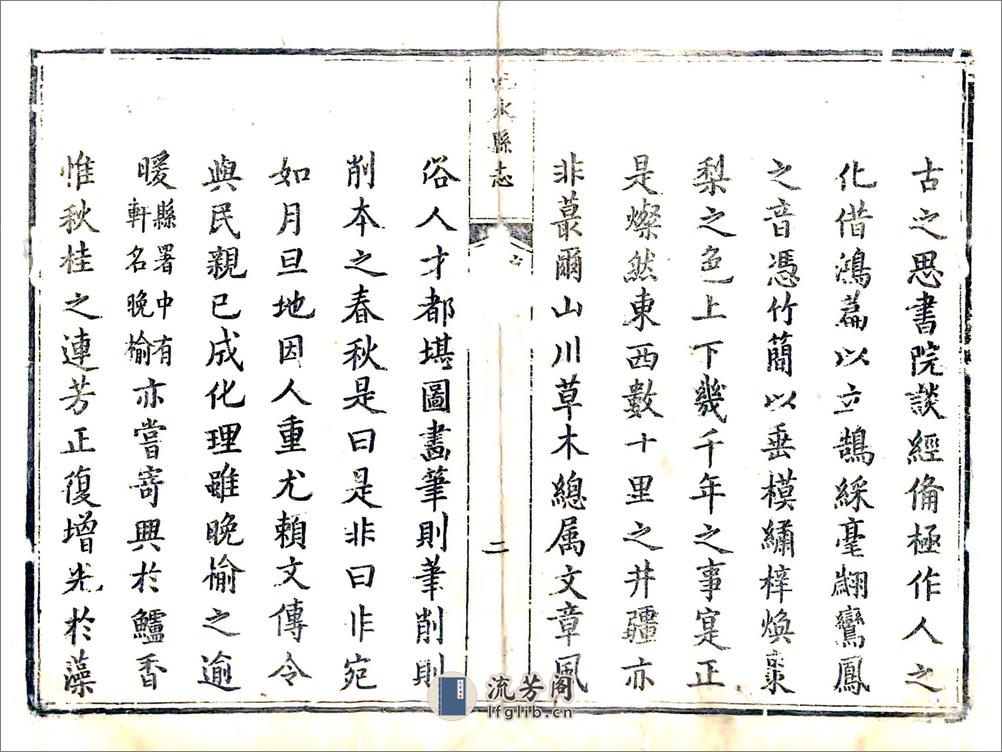 古之思書院談經俻極作人之
化借鴻篇以立鵠綵毫翽鸞鳳
之音憑竹簡以垂模繡梓煥棗
梨之色上下幾千年之事寔正
是燦然東西數十里之井疆亦
非蕞爾山川草木總属文章風
水縣志
二
俗人才都堪圖畫筆則筆削則
削本之春秋是曰是非曰非宛
如月旦地因人重尤賴文傳令
與民親已成化理雖晚榆之逾
暖縣署中有軒名晚榆亦嘗寄興於鱸香
惟秋桂之連芳正復增光於藻
流芳阁
lfglib.cn